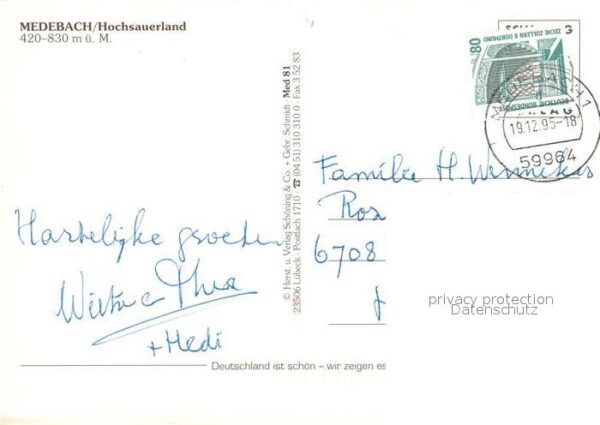 MEDEBACH/Hochsauerland
420-830 m ü. M.
Hartelijke groeten
+ Hedi
© Herst. u. Verlag Schöning & Co. + Gebr. Schmidt · Med 81
23506 Lübeck · Postfach 1710 · ☎ (04 51) 310 310 0 · Fax 3 52 83
80
ZECHE ZOLLERN II DORTMUND
DEUTSCHE BUNDESPOST
MEDEBACH 1
19.12.95-18
59964
Familie H.
6708
privacy protection
Datenschutz
Deutschland ist schön – wir zeigen es